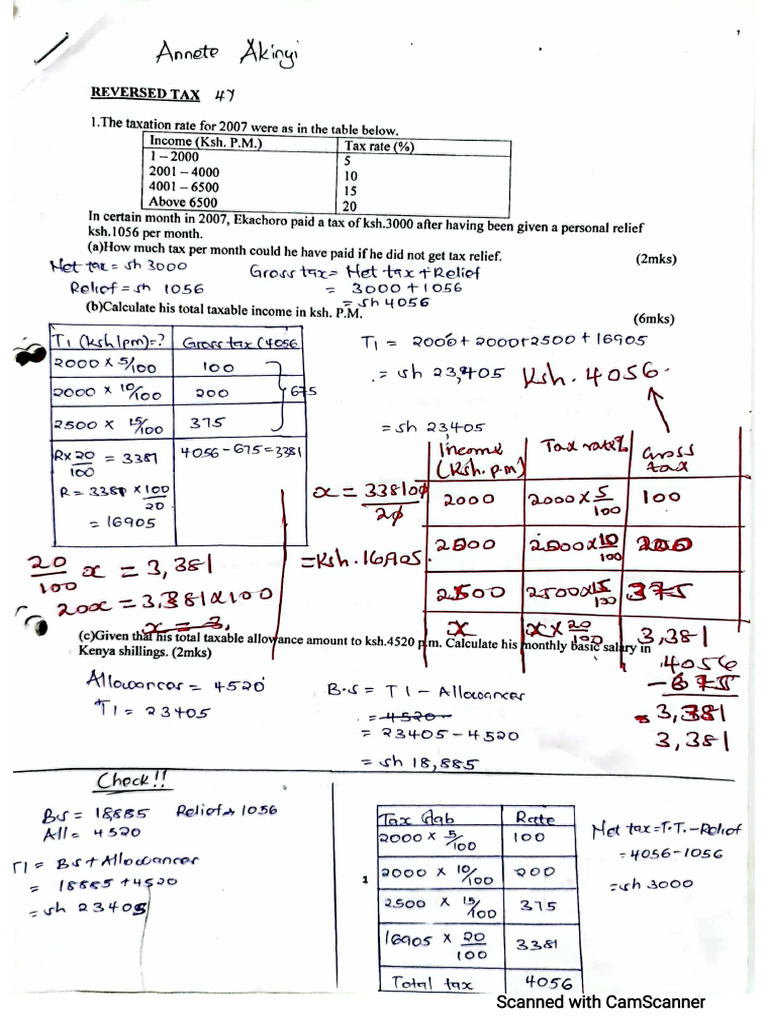 Annete Akinyi
REVERSED TAX 4Y
1.The taxation rate for 2007 were as in the table below.
Income (Ksh. P.M.) Tax rate (%)
1 – 2000 5
2001 – 4000 10
4001 – 6500 15
Above 6500 20
In certain month in 2007, Ekachoro paid a tax of ksh.3000 after having been given a personal relief
ksh.1056 per month.
(a)How much tax per month could he have paid if he did not get tax relief. (2mks)
Net tax = sh 3000 Gross tax = Net tax + Relief
Relief = sh 1056 = 3000 + 1056
= sh 4056
(b)Calculate his total taxable income in ksh. P.M. (6mks)
T1 (ksh/pm)=? Gross tax (4056
2000 x 5/100 100
2000 x 10/100 200 675
2500 x 15/100 375
R x 20/100 = 3381 4056-675=3381
R = 3381 x 100/20
= 16905
T1 = 2000 + 2000 + 2500 + 16905
= sh 23,405 Ksh. 4056.
= sh 23405
Income (Ksh. p.m) Tax rate% Gross tax
2000 2000 x 5/100 100
2000 2000x10/100 200
2500 2500x15/100 375
x x x 20/100 3,381
4056
-675
= 3,381
3,381
x = 338100/20
= Ksh. 16905.
20/100 x = 3,381
20x = 3,381 x 100
x = 3,
(c)Given that his total taxable allowance amount to ksh.4520 p.m. Calculate his monthly basic salary in
Kenya shillings. (2mks)
Allowances = 4520 B.s = T1 – Allowances
T1 = 23405 = 4520
= 23405 – 4520
= sh 18,885
Check!!
Bs = 18885 Relief = 1056
All = 4520
T1 = Bs + Allowances
= 18885 + 4520
= sh 23405
Tax slab Rate
2000 x 5/100 100
2000 x 10/100 200
2500 x 15/100 375
16905 x 20/100 3381
Total tax 4056
Net tax = T.T. – Relief
= 4056 – 1056
= sh 3000
1
Scanned with CamScanner